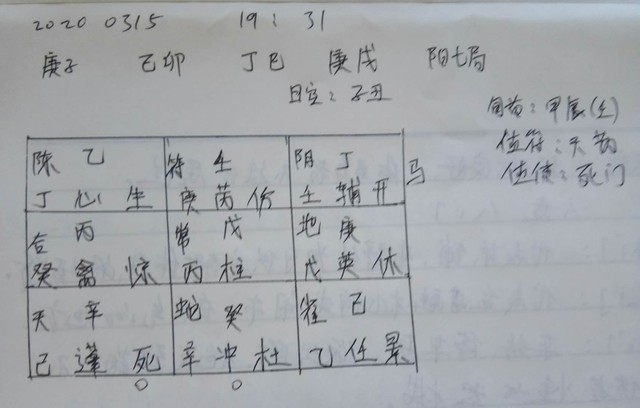 2020 0315 19:31
庚子 己卯 丁巳 庚戌 阳七局
日空:子丑
旬首:甲辰(壬)
值符:天芮
值使:死门
陈 乙 符 壬 阴 丁 马
丁 心 生 庚 芮 伤 壬 辅 开
合 丙 常 戊 地 庚
癸 禽 惊 丙 柱 戊 英 休
天 辛 蛇 癸 雀 己
己 蓬 死 辛 冲 杜 乙 任 景